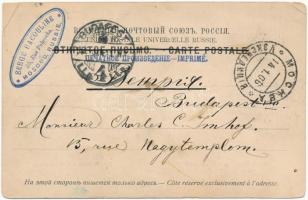 ВСЕМІРНЫЙ ПОЧТОВЫЙ СОЮЗЪ. РОССІЯ.
UNION POSTALE UNIVERSELLE RUSSIE.
ОТКРЫТОЕ ПИСЬМО. — CARTE POSTALE
ПЕЧАТНОЕ ПРОИЗВЕДЕНІЕ - IMPRIMÉ.
SERGE
MOSCOU, RUSSIE.
МОСКВА
Budapest
Monsieur Charles C. Imhof.
15, rue Nagytemplom.
На этой сторонѣ пишется только адресъ. — Côté réservé exclusivement à l'adresse.